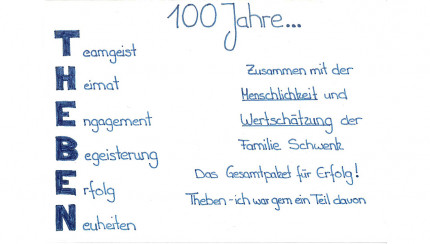 100 Jahre...
Teamgeist
Heimat
Engagement
Begeisterung
Erfolg
Neuheiten
Zusammen mit der
Menschlichkeit und
Wertschätzung der
Familie Schwenk
Das Gesamtpaket für Erfolg!
Theben - ich war gern ein Teil davon